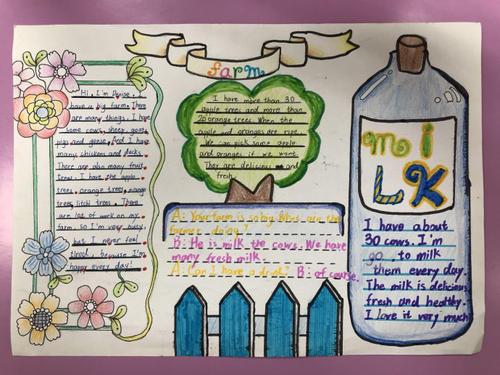 farm
Hi, I'm
have a big farm. There
are many things. I have
some cows, sheep, goats,
pigs and geese. And I have
many chickens and ducks.
There are also many fruit
trees. I have the apple
trees, orange trees,
trees, litchi trees. There
are lot of work on my
farm. so I'm very busy,
but I never feel
tired, because I'm
happy every day!
I have more than 30
apple trees and more than
20 orange trees. When the
apple and oranges are ripe.
We can pick some apple
and oranges if we want.
They are delicious and
fresh.
A: Your farm is so big. What are the
farmer doing?
B: He is milk the cows. We have
many fresh milk.
A: Can I have a drink? B: of course.
miLK
I have about
30 cows. I'm
go to milk
them every day.
The milk is delicious
fresh and healthy.
I love it very much